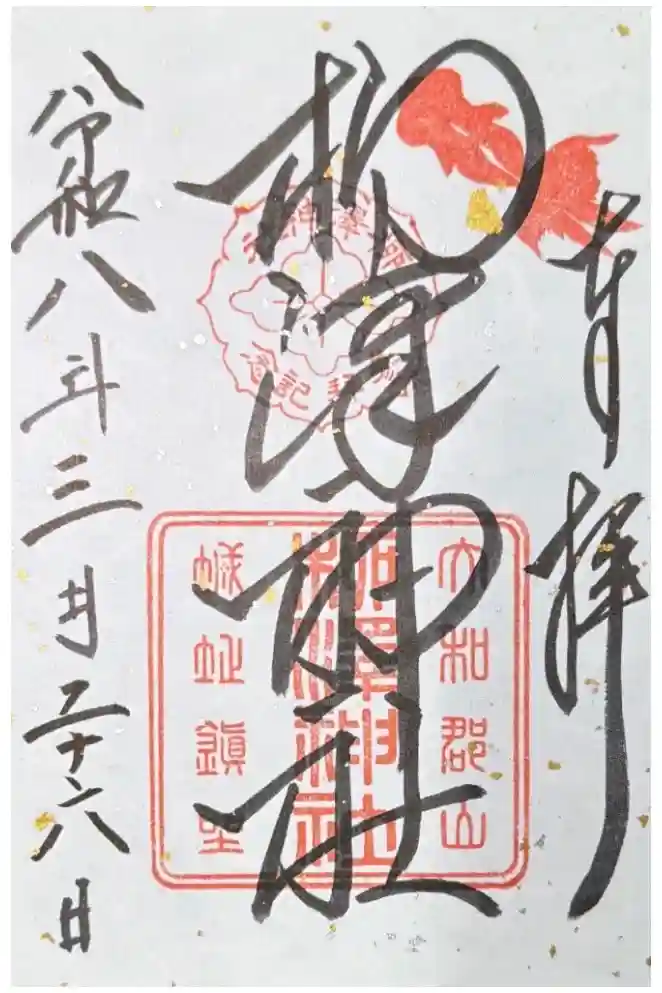 奉拝
柳澤神社
令和八年三月二十六日
大和郡山
柳澤神社
城址鎮座